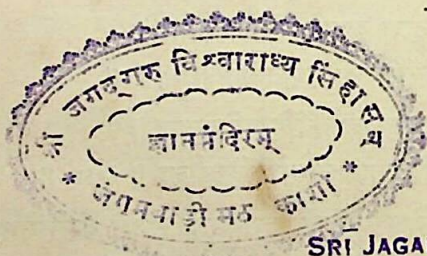 श्री जगद्गुरु विश्वाराध्य सिंहासन
ज्ञानमंदिरम्
* जंगमवाड़ी मठ काशी *
SRI JAGA